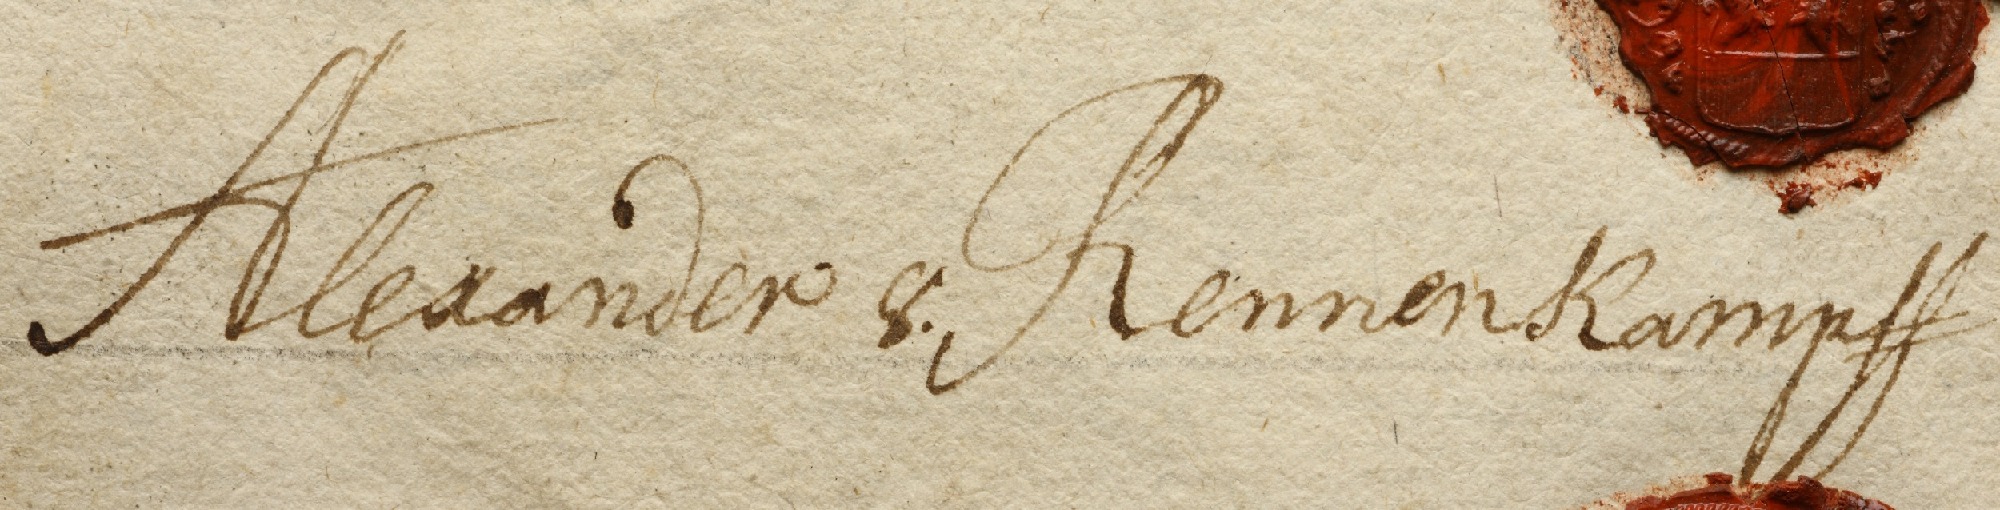 Alexander v. Rennenkampff